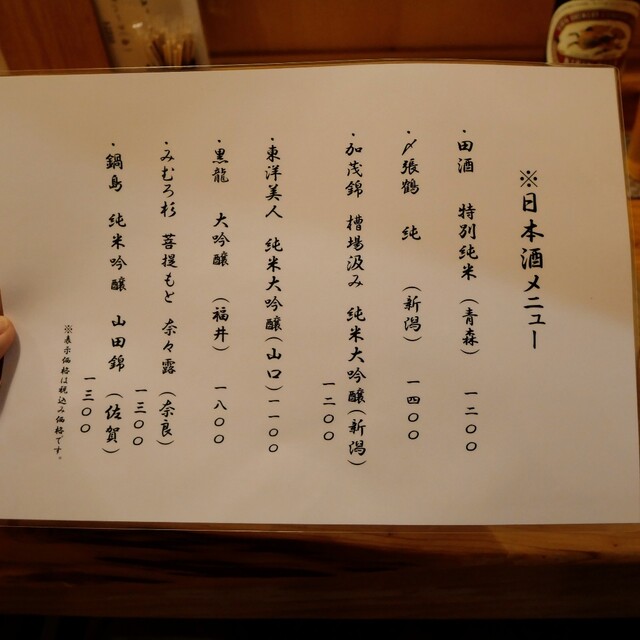 ※日本酒メニュー
・田酒 特別純米 (青森) 一二〇〇
・〆張鶴 純 (新潟) 一四〇〇
・加茂錦 槽場汲み 純米大吟醸(新潟)
一二〇〇
・東洋美人 純米大吟醸(山口)一一〇〇
・黒龍 大吟醸 (福井) 一八〇〇
・みむろ杉 菩提もと 奈々露 (奈良)
一三〇〇
・鍋島 純米吟醸 山田錦 (佐賀)
一三〇〇
※表示価格は税込み価格です。